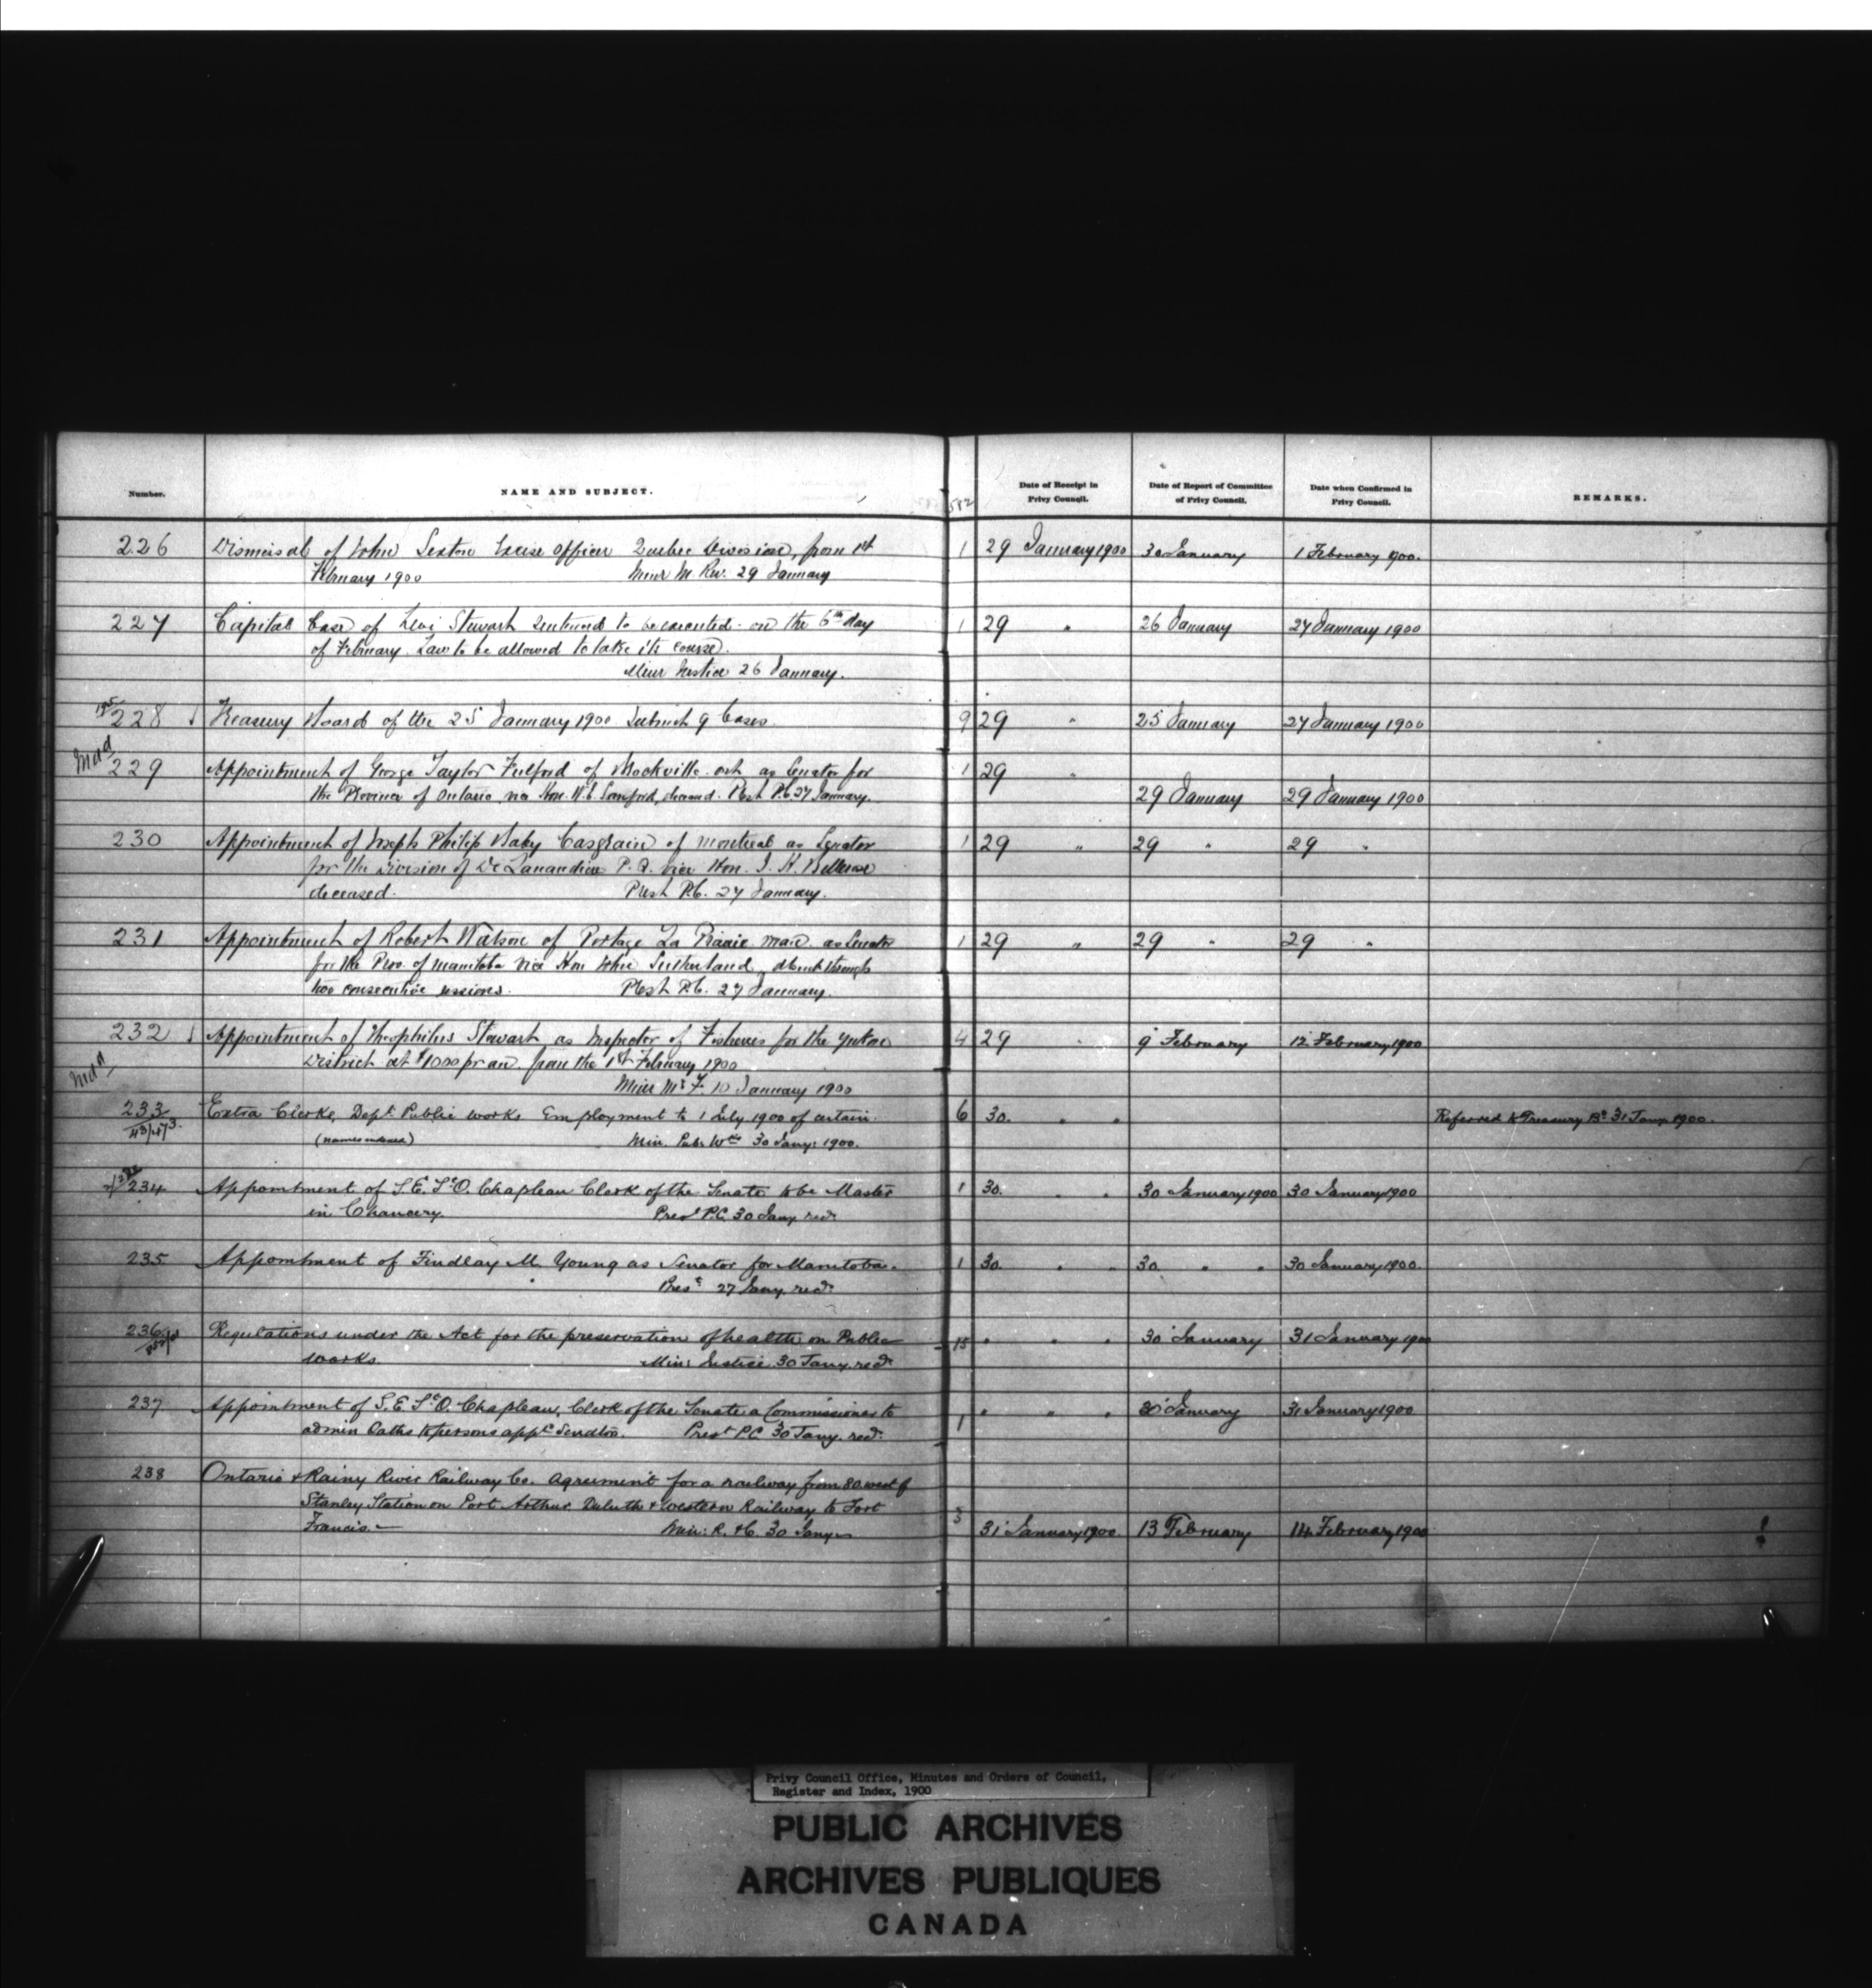 Number.
NAME AND SUBJECT.
582
Date of Receipt in Privy Council.
Date of Report of Committee of Privy Council.
Date when Confirmed in Privy Council.
REMARKS.
226 Dismissal of John Sexton Excise Officer Quebec Division, from 1st 1 29 January 1900 30 January 1 February 1900.
February 1900 Minr In. Rev. 29 January
227 Capital Case of Levi Stewart Sentenced to be executed on the 6th day 1 29 " 26 January 27 January 1900
of February. Law to be allowed to take its course.
Minr Justice 26 January.
228 Treasury Board of the 25 January 1900 Submit 9 Cases 9 29 " 25 January 27 January 1900
229 Appointment of George Taylor Fulford of Brockville Ont as Senator for 1 29 "
the Province of Ontario vice Hon. W. E. Sanford, deceased. Prest P.C. 27 January. 29 January 29 January 1900
230 Appointment of Joseph Philip Baby Casgrain of Montreal as Senator 1 29 " 29 " 29 "
for the Division of De Lanaudiere P.Q. vice Hon. J. H. Bellerose
deceased. Prest P.C. 27 January.
231 Appointment of Robert Watson of Portage La Prairie Man. as Senator 1 29 " 29 " 29 "
for the Prov. of Manitoba vice Hon John Sutherland, absent through
two consecutive sessions. Prest P.C. 27 January.
232 Appointment of Theophilus Stewart as Inspector of Fisheries for the Yukon 4 29 " 9 February 12 February 1900
District at $1000 pr an from the 1st February 1900
Minr M & F. 10 January 1900
233 Extra Clerks, Dept. Public Works Employment to 1 July 1900 of certain 6 30. " " Referred to Treasury Bd 31 Jany 1900.
(names indexed) Min. Pub. Wks 30 Jany: 1900.
234 Appointment of S. E. St O. Chapleau Clerk of the Senate to be Master 1 30. " " 30 January 1900 30 January 1900
in Chancery. Prest P.C. 30 Jany recd
235 Appointment of Findlay M. Young as Senator for Manitoba. 1 30. " " 30 " " 30 January 1900.
Prest 27 Jany recd
236 Regulations under the Act for the preservation of health on Public 15 " " " 30 January 31 January 1900
works. Min: Justice 30 Jany. recd
237 Appointment of S. E. St O. Chapleau, Clerk of the Senate a Commissioner to 1 " " " 30 January 31 January 1900
admin Oaths to persons appd Senators. Prest PC 30 Jany. recd
238 Ontario & Rainy River Railway Co. Agreement for a railway from 80 west of
Stanley Station on Port Arthur Duluth & Western Railway to Fort 5
Francis. Min: R. & C. 30 Jany 31 January 1900. 13 February 14 February 1900
Privy Council Office, Minutes and Orders of Council,
Register and Index, 1900
PUBLIC ARCHIVES
ARCHIVES PUBLIQUES
CANADA